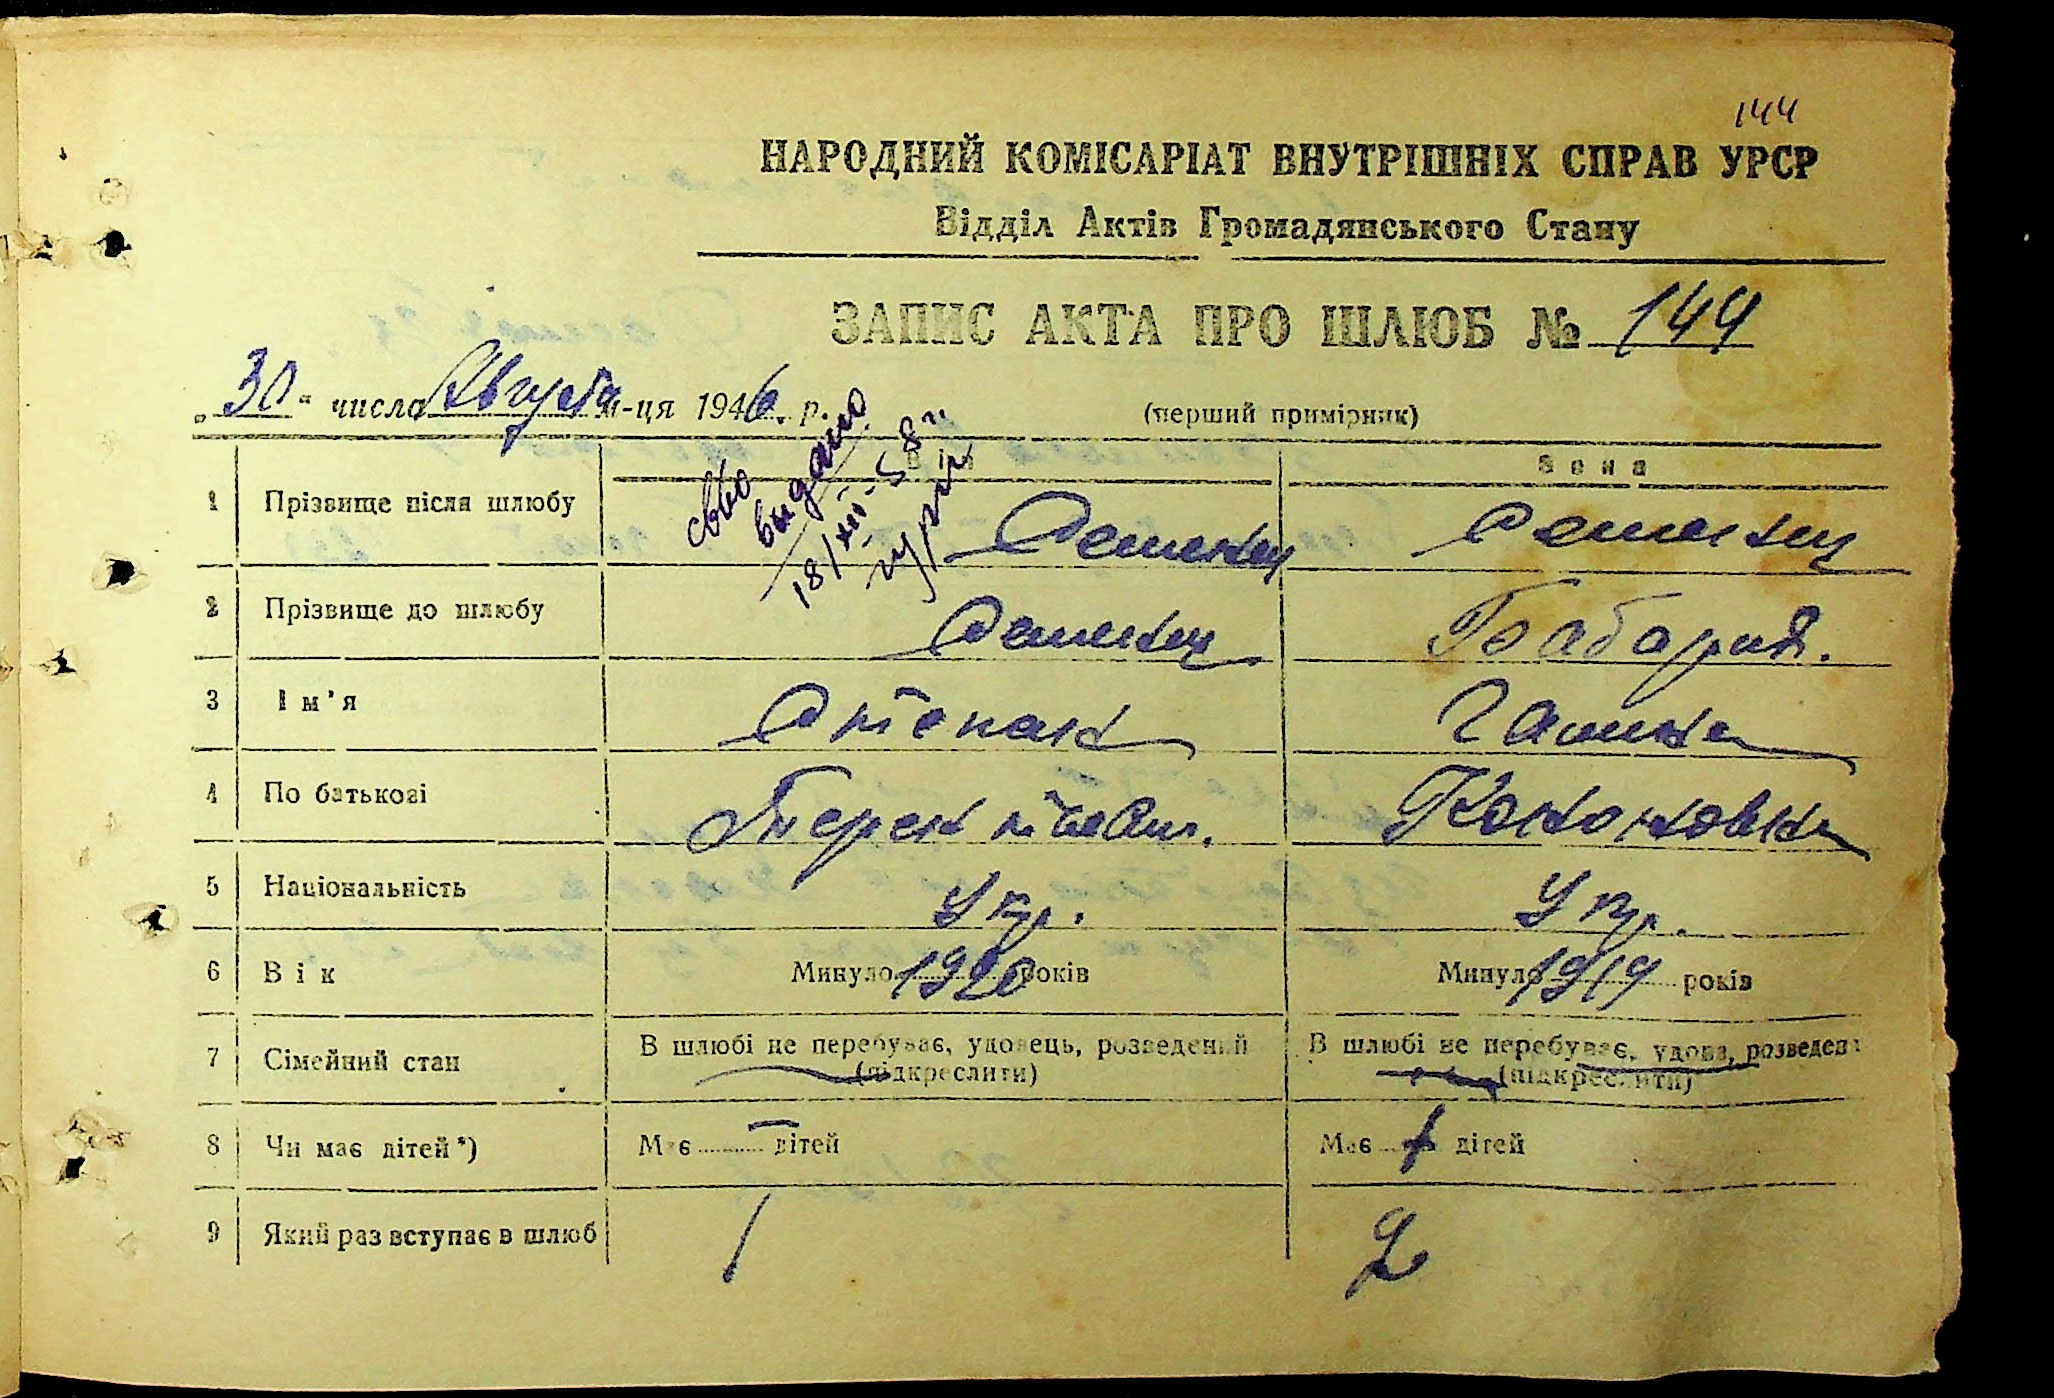 144
НАРОДНИЙ КОМІСАРІАТ ВНУТРІШНІХ СПРАВ УРСР
Відділ Актів Громадянського Стану
ЗАПИС АКТА ПРО ШЛЮБ № 144
„30“ числа Августа м-ця 1946 р. (перший примірник)
Він Вона
1 Прізвище після шлюбу
2 Прізвище до шлюбу
3 Ім'я Степан Галина
4 По батькові Терентіевич. Кононовна
5 Національність Укр. Укр.
6 Вік Минуло 1920 років Минуло 1919 років
7 Сімейний стан В шлюбі не перебуває, удовець, розведений В шлюбі не перебуває, удова, розведена
(підкреслити) (підкреслити)
8 Чи має дітей*) Має — дітей Має дітей
9 Який раз вступає в шлюб 1 2
св-во
выдано
18/XII-58 г